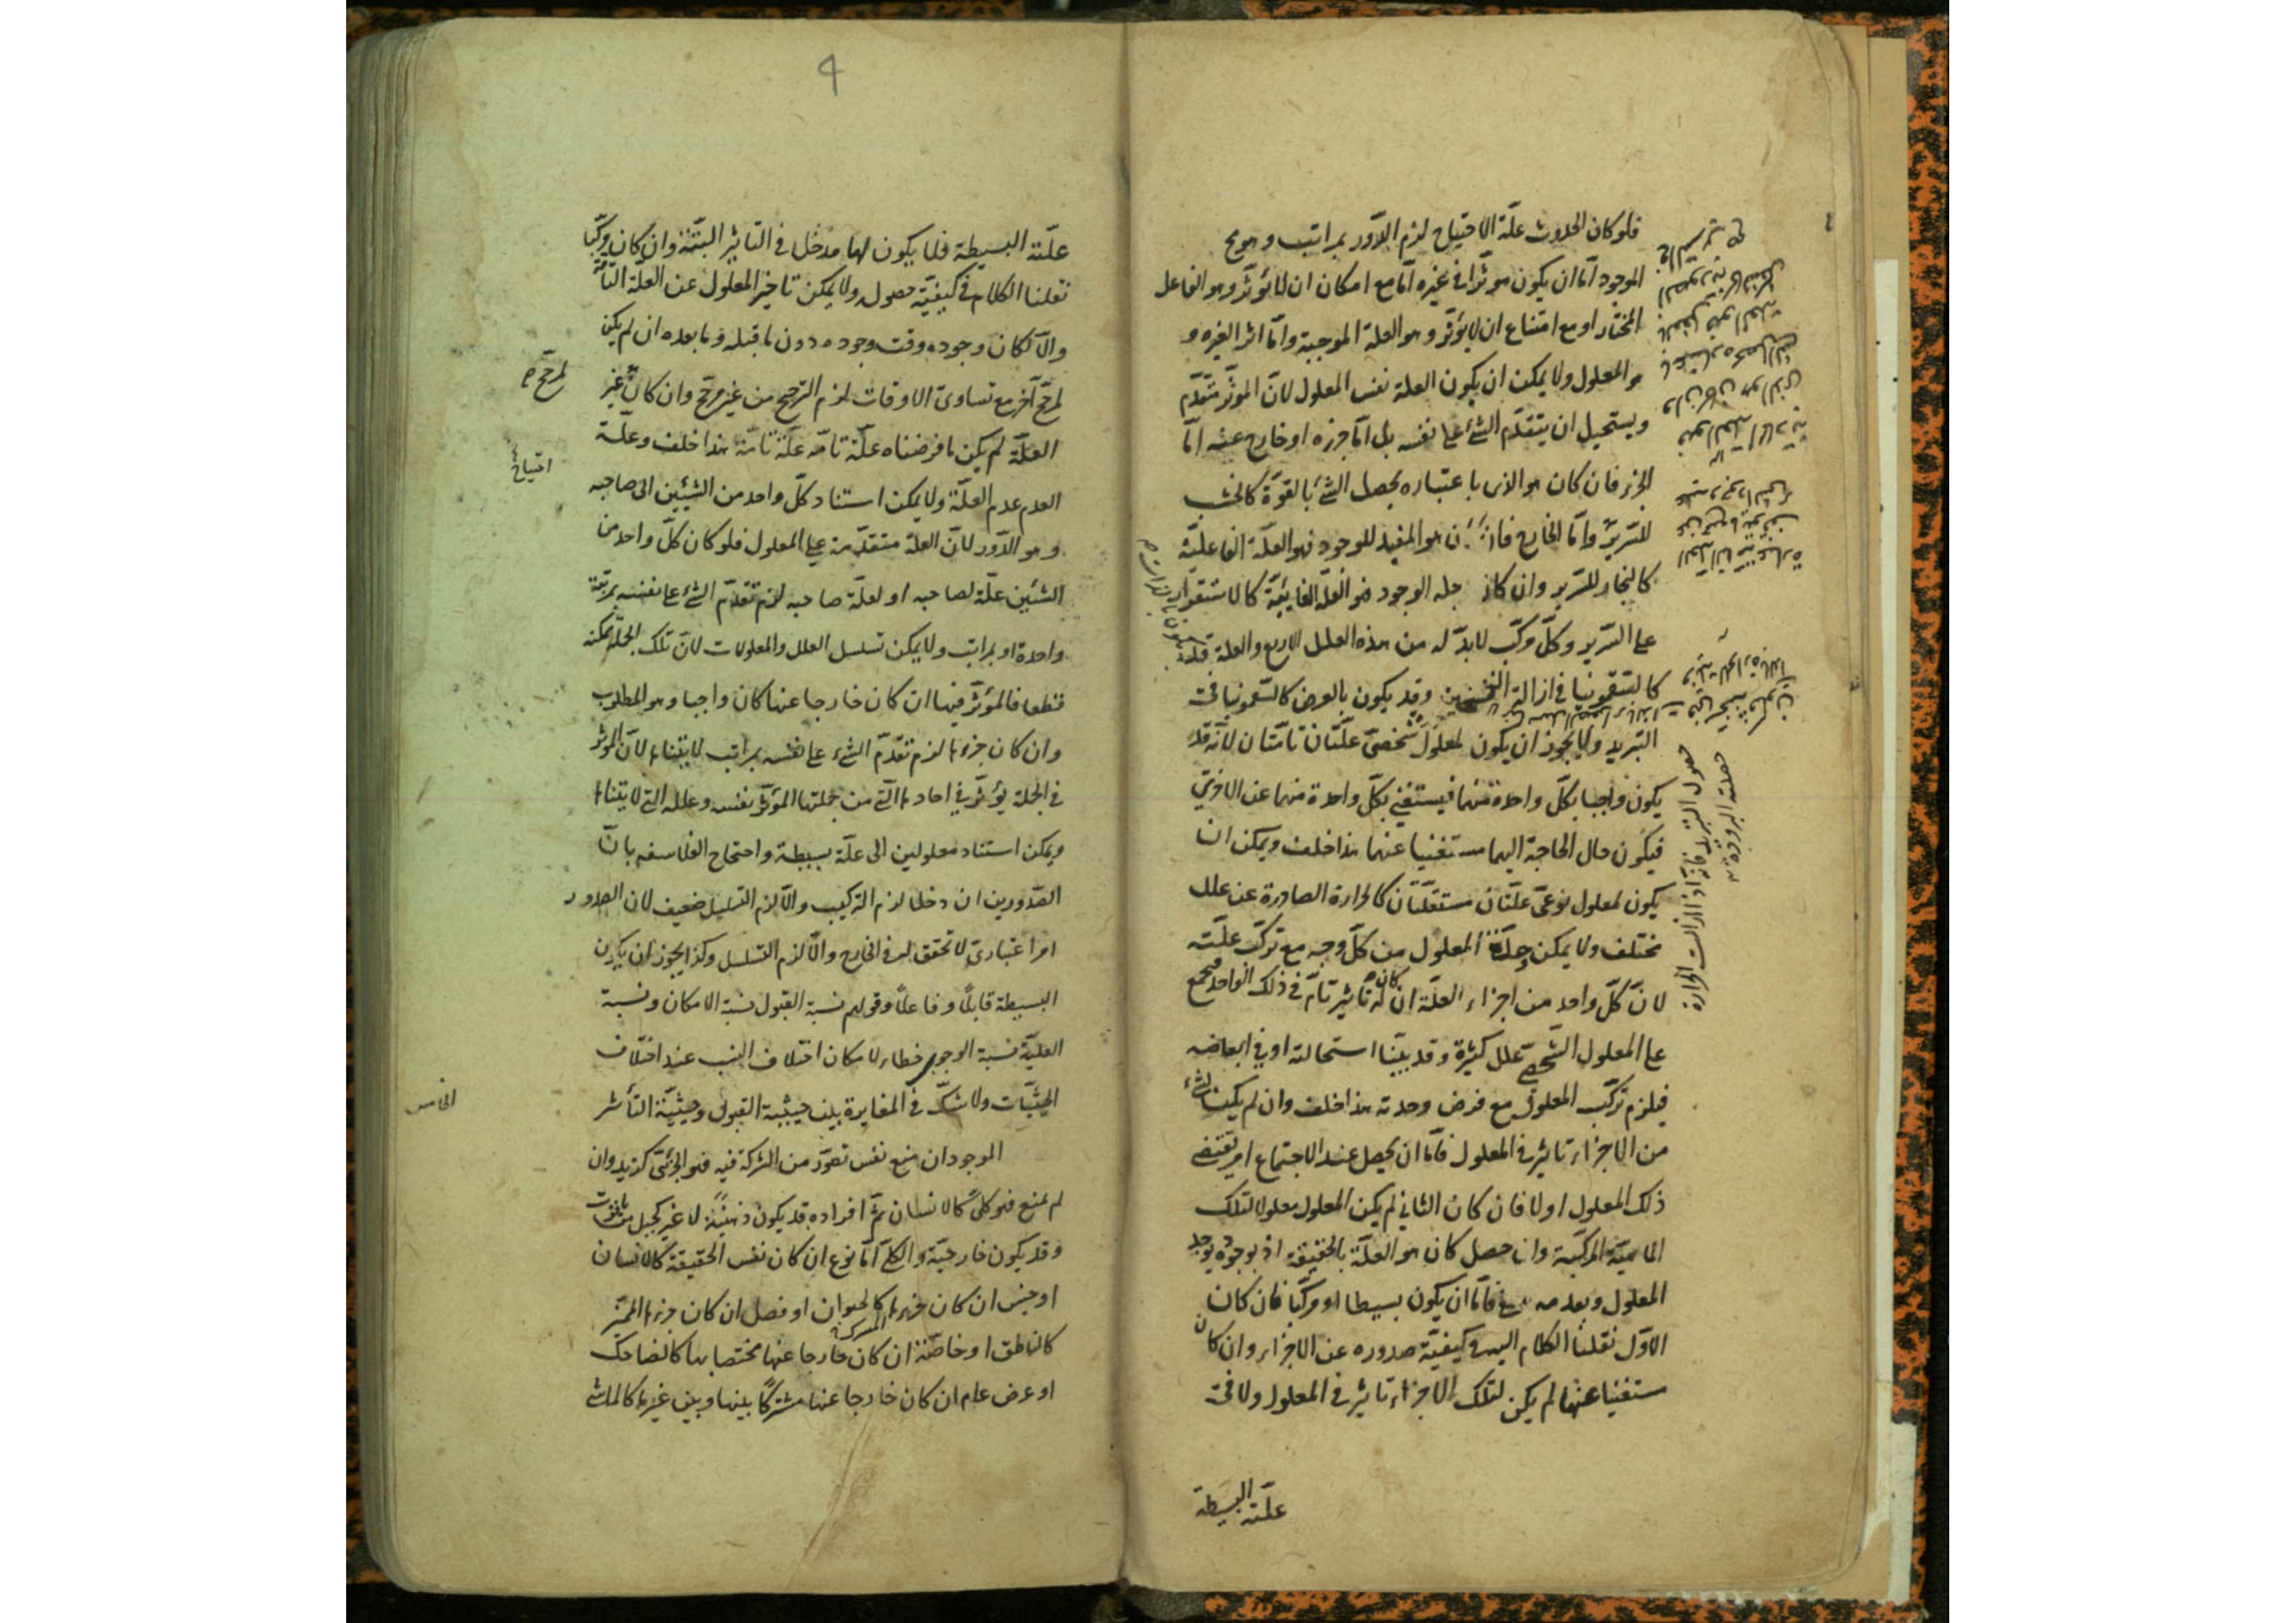 فلو كان الحدوث علّة الاحتياج لزم الدّور بمراتب وهو مح
الموجود امّا ان يكون موثّرا في غيره امّا مع امكان ان لا يؤثّر وهو الفاعل
المختار او مع امتناع ان لا يؤثّر وهو العلة الموجبة وامّا اثرا لغيره و
هو المعلول ولا يمكن ان يكون العلة نفس المعلول لانّ الموثّر متقدّم
ويستحيل ان يتقدّم الشئ على نفسه بل امّا جزءه او خارج عنه امّا
الجزء فان كان هو الذى باعتباره يحصل الشئ بالقوّة كالخشب
للسّرير وامّا الخارج فان كان هو المفيد للوجود فهو العلّة الفاعليّة
كالنجار للسّرير وان كان لاجله الوجود فهو العلّة الغائيّة كالاستقرار
على السّرير وكلّ مركّب لا بدّ له من هذه العلل الاربع والعلة قد
كالسّقمونيا في ازالة التّسخين وقد يكون بالعرض كالسّقمونيا في
التبريد ولا يجوز ان يكون لمعلول شخصىّ علّتان تامّتان لانّه قد
يكون واجبا بكلّ واحدة منهما فيستغنى بكلّ واحدة منهما عن الاخرىٰ
فيكون حال الحاجة اليهما مستغنيا عنهما هذا خلف ويمكن ان
يكون لمعلول نوعىّ علّتان مستقلّتان كالحرارة الصادرة عن علل
مختلف ولا يمكن وحدة المعلول من كلّ وجه مع تركّب علّته
لانّ كلّ واحد من اجزاء العلّة ان كان له تاثير تامّ في ذلك الواحد فيجمع
على المعلول الشّخصى علل كثيرة وقد بيّنّا استحالته او في ابعاضه
فيلزم تركّب المعلول مع فرض وحدته هذا خلف وان لم يكن لشئ
من الاجزاء تاثير في المعلول فامّا ان يحصل عند الاجتماع امر يقتضى
ذلك المعلول او لا فان كان الثانى لم يكن المعلول معلولا لتلك
الماهيّة المركّبة وان حصل كان هو العلّة بالحقيقة اذ بوجوده يوجد
المعلول وبعدمه فامّا ان يكون بسيطا او مركّبا فان كان
الاوّل نقلنا الكلام اليه في كيفيّة صدوره عن الاجزاء وان كان
مستغنيا عنها لم يكن لتلك الاجزاء تاثير في المعلول ولا في
حصول التبريد فانّه اذا زالت الحرارة
حصلت البرودة
علّته البسيطة
علّته البسيطة فلا يكون لها مدخل في التاثير البتّة وان كان مركّبا
نقلنا الكلام في كيفيّة حصوله ولا يمكن تاخير المعلول عن العلّة التامّة
والّا لكان وجوده وقت وجوده دون ما قبله وما بعده ان لم يكن
لمرجّح آخر مع تساوى الاوقات لزم الترجيح من غير مرجّح وان كان غير
لمرجّح
العلّة لم يكن ما فرضناه علّة تامّه علّة تامّة هذا خلف وعلّة
احتياج
العدم عدم العلّة ولا يمكن استناد كلّ واحد من الشيئين الى صاحبه
وهو الدّور لانّ العلة متقدّمة على المعلول فلو كان كلّ واحد من
الشيئين علّة لصاحبه او لعلّة صاحبه لزم تقدّم الشئ على نفسه بمرتبة
واحدة او بمراتب ولا يمكن تسلسل العلل والمعلولات لانّ تلك الجملة ممكنه
قطعا فالمؤثّر فيها ان كان خارجا عنها كان واجبا وهو المطلوب
وان كان جزءها لزم تقدّم الشئ على نفسه بمراتب لا يتناها لانّ المؤثر
في الجملة يؤثّر في احادها الّتى من جملتها المؤثّر نفسه وعلله التى لا يتناها
ويمكن استناد معلولين الى علّة بسيطة واحتجاج الفلاسفه بانّ
الصّدورين ان دخلا لزم التركيب والّا لزم التسلسل ضعيف لان الصدور
امر اعتبارىّ لا تحقق له في الخارج والّا لزم التسلسل وكذا يجوز ان يكون
البسيطة قابلًا وفاعلًا وقولهم نسبة القبول نسبة الامكان ونسبة
العليّة نسبة الوجوب خطاء لامكان اختلاف النسب عند اختلاف
الحيثيّات ولا شكّ في المغايرة بين حيثيّة القبول وحيثيّة التأثير
الخامس
الموجود ان منع نفس تصوّره من الشركة فيه فهو الجزئىّ كزيد وان
لم يمنع فهو كلىّ كالانسان ثمّ افراده قد يكون ذهنيّة لا غير كجبل من ياقوت
وقد يكون خارجيّة والكلّى امّا نوع ان كان نفس الحقيقة كالانسان
او جنس ان كان جزءها المشترك كالحيوان او فصل ان كان جزءها المميّز
كالناطق او خاصّة ان كان خارجا عنها مختصا بها كالضاحك
او عرض عام ان كان خارجا عنها مشتركًا بينها وبين غيرها كالماشى